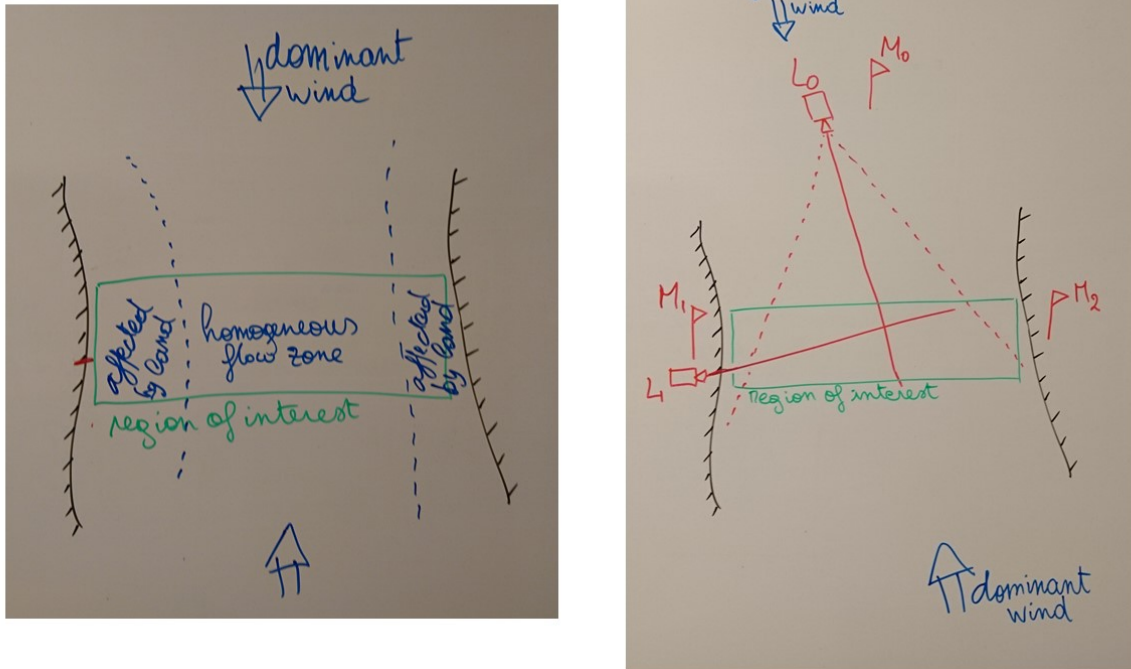 dominant
wind
affected
by land
homogeneous
flow zone
affected
by land
region of interest
wind
L0
M0
M1
M2
L1
region of interest
dominant
wind